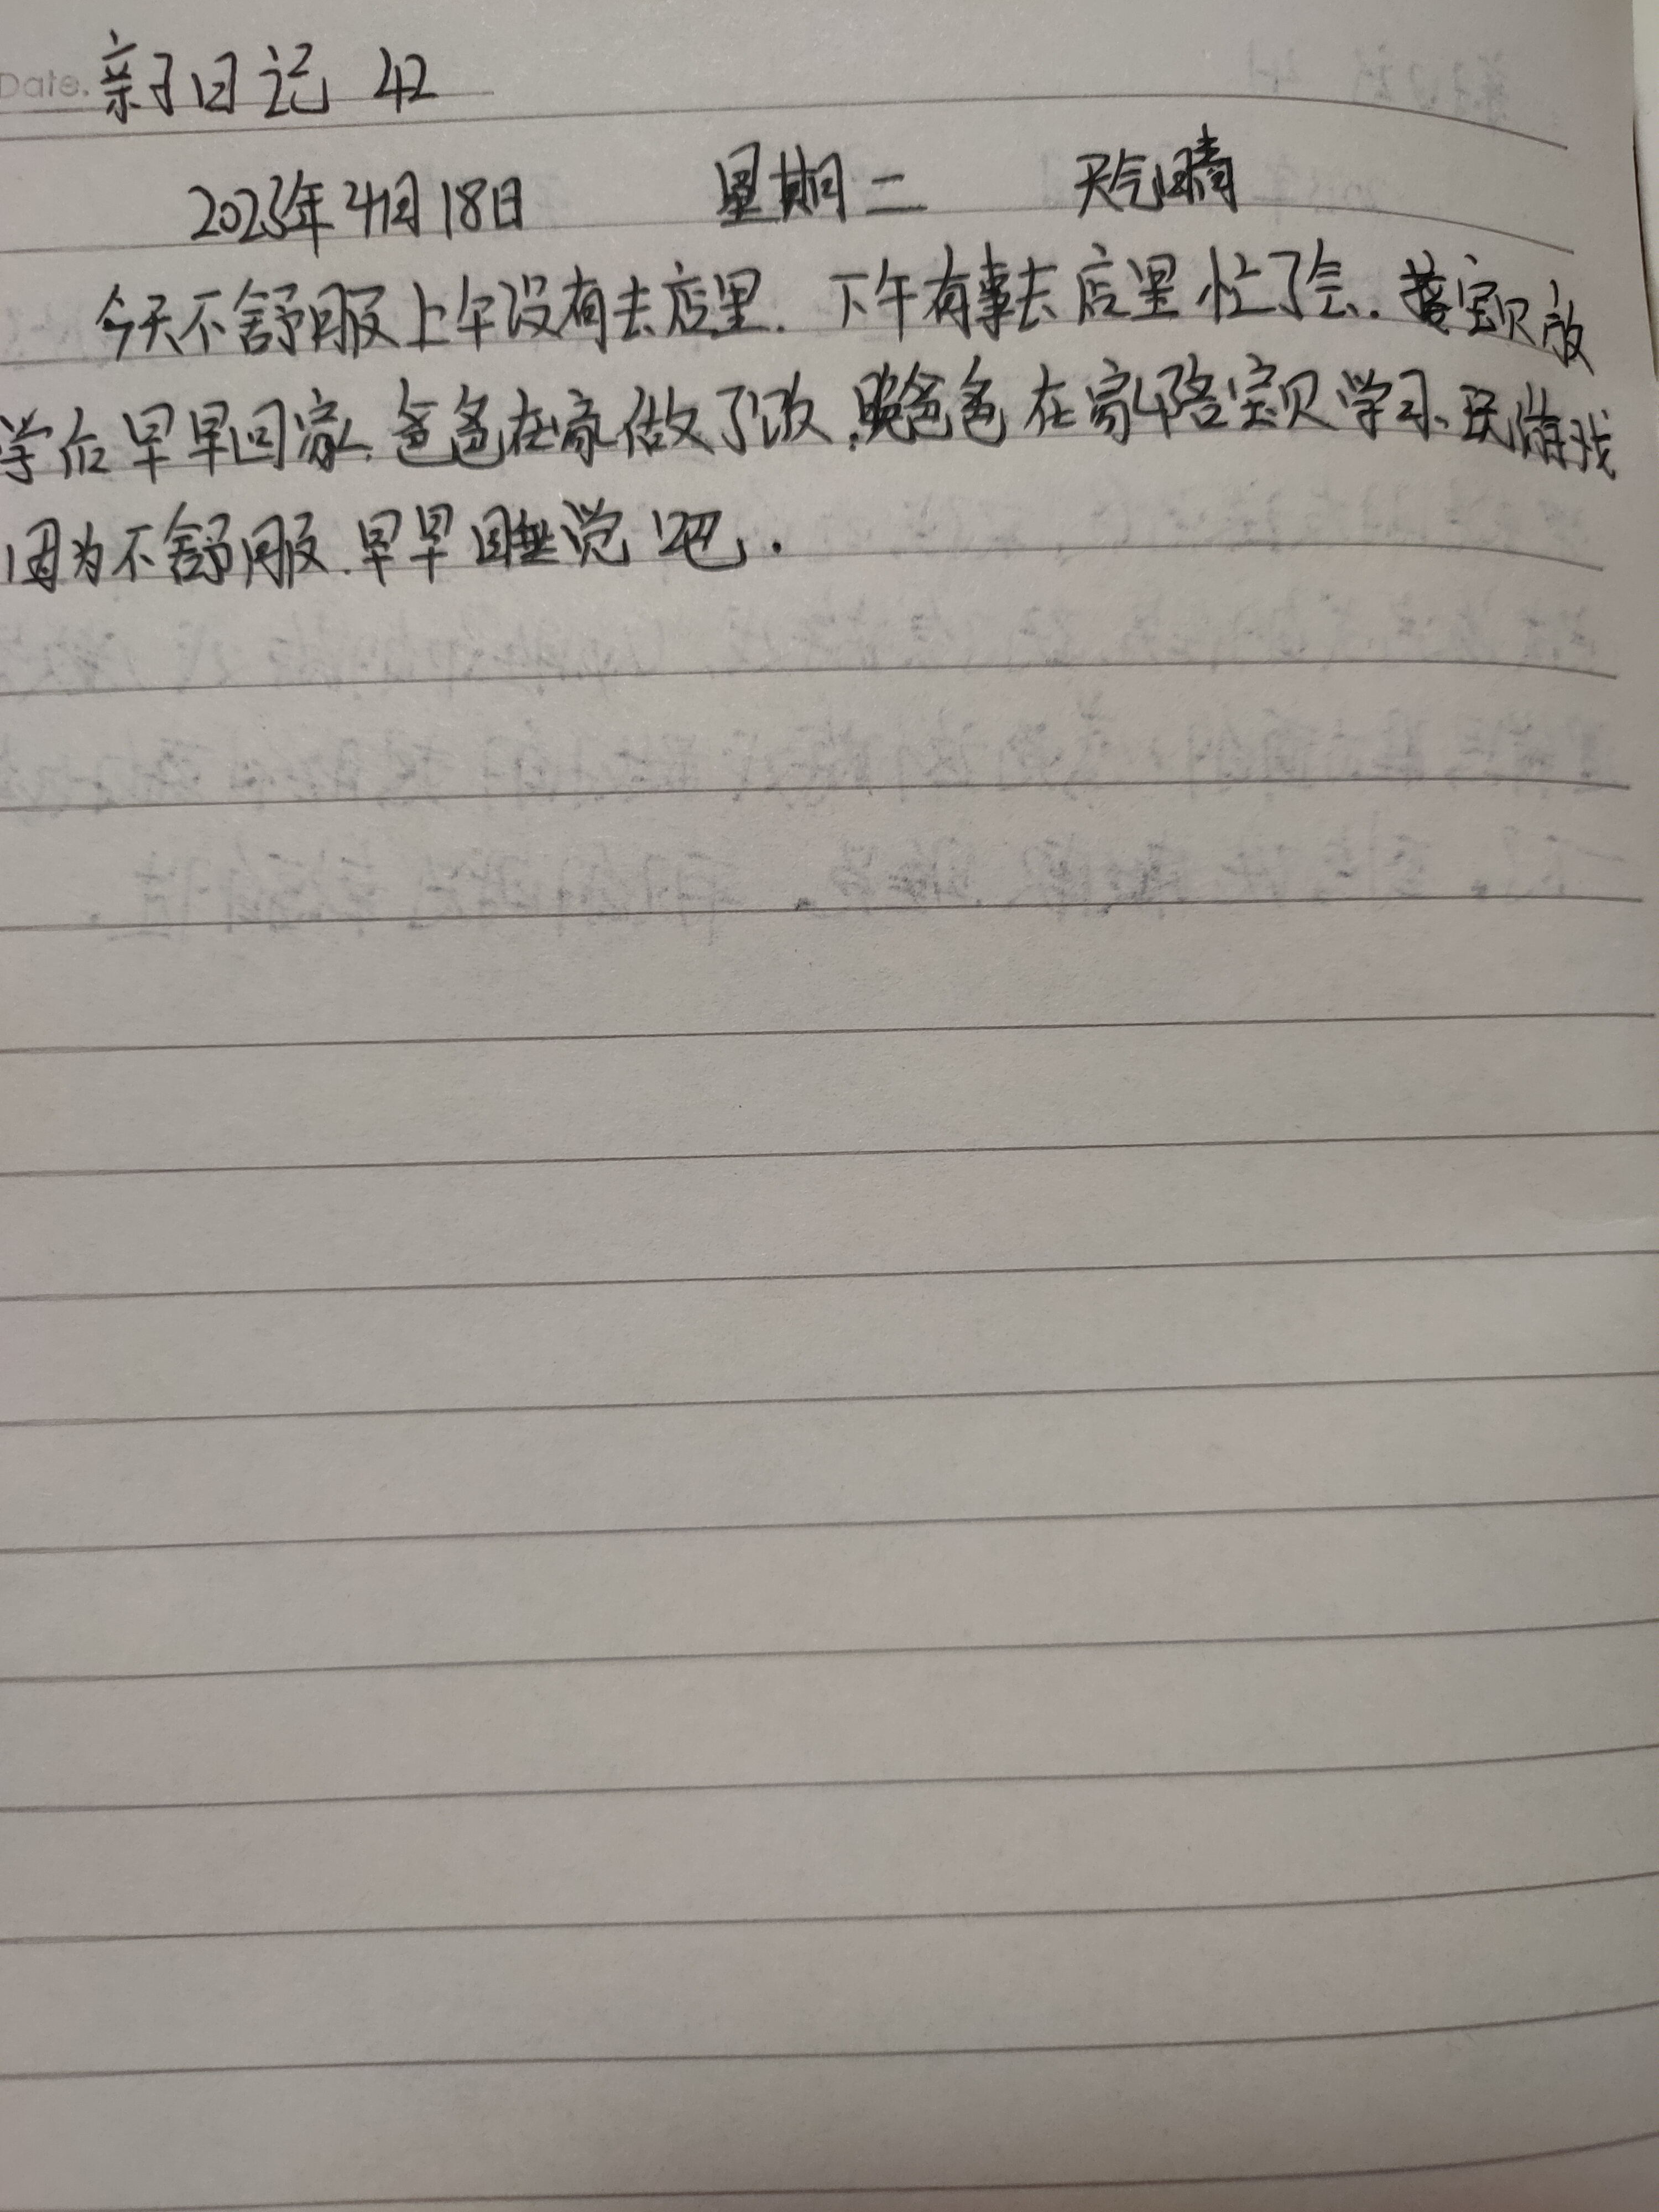 Date. 亲子日记 42
2023年4月18日 星期二 天气晴
今天不舒服上午没有去店里. 下午有事去店里忙了会. 接宝贝放
学后早早回家. 爸爸在家做了饭, 晚爸爸在家陪宝贝学习、玩游戏
因为不舒服. 早早睡觉吧.